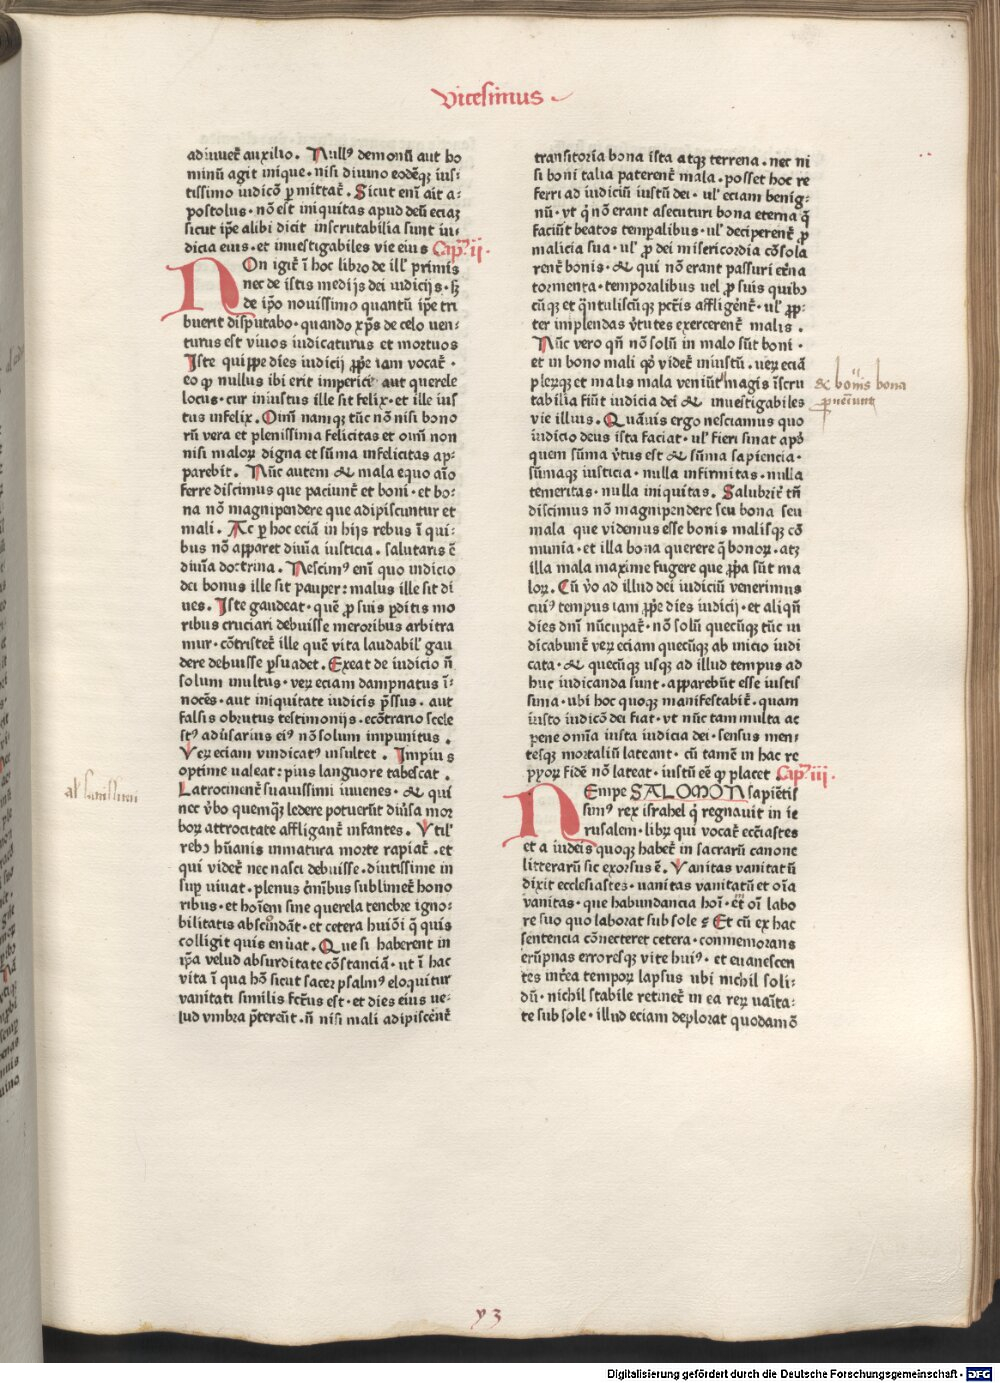 Vicesimus
adiuuet̄ auxilio. Null⁹ demonū aut ho
minū agit inique. nisi diuino eodēqꝫ ius-
tissimo iudicō ꝑmittat̄. Sicut enī ait a-
postolus. nō est iniquitas apud deū eciaꝫ
sicut ip̄e alibi dicit inscrutabilia sunt iu-
dicia eius. et inuestigabiles vie eius Cap. ii.
NOn igit̄ ī hoc libro de ill' primis
nec de istis medijs dei iudicijs. sꝫ
de ip̄o nouissimo quantū ip̄e tri
buerit disputabo. quando xp̄s de celo uen-
turus est viuos iudicaturus et mortuos
Iste quippe dies iudicij ꝓp̄e iam vocat̄.
eo qꝫ nullus ibi erit impericie aut querele
locus. cur iniustus ille sit felix. et ille ius
tus infelix. Oīm namqꝫ tūc nō nisi bono
rū vera et plenissima felicitas et oīm non
nisi maloꝝ digna et sūma infelicitas ap-
parebit. Nūc autem & mala equo aīo
ferre discimus que paciunt̄ et boni. et bo-
na nō magnipendere que adipiscuntur et
mali. Ac ꝑ hoc eciā in hijs rebus ī qui-
bus nō apparet diuīa iusticia. salutaris ē
diuīa doctrina. Nescim⁹ enī quo iudicio
dei bonus ille sit pauper: malus ille sit di
ues. Iste gaudeat. quē ꝓ suis ꝑditis mo
ribus cruciari debuisse meroribus arbitra
mur. cōtristet̄ ille quē vita laudabil' gau
dere debuisse ꝑsuadet. Exeat de iudicio ñ
solum inultus. veꝝ eciam dampnatus ī-
nocēs. aut iniquitate iudicis p̄ssus. aut
falsis obrutus testimonijs. econtrario scele
st⁹ adūsarius ei⁹ nō solum impunitus.
Veꝝ eciam vindicat⁹ insultet. Impius
optime ualeat: pius languore tabescat.
Latrocinent̄ suauissimi iuuenes. & qui
nec v̄bo quemqꝫ ledere potuerūt diūsa mor
boꝝ attrocitate affligant̄ infantes. Vtil'
reb⁹ hūanis inmatura morte rapiat̄. et
qui videt̄ nec nasci debuisse. diutissime in
suꝑ viuat. plenus c̄mībus sublimet̄ hono
ribus. et hoīem sine querela tenebre igno-
bilitatis abscōdāt. et cetera hui⁹mōi q̄ quis
colligit quis enūat. Que si haberent in
ip̄a velud absurditate cōstanciā. ut ī hac
vita ī qua hō sicut sacer psalm⁹ eloquitur
vanitati similis fct̄us est. et dies eius ue-
lud vmbra p̄tereūt. ñ nisi mali adipiscēnt̄
transitoria bona ista atqꝫ terrena. nec ni
si boni talia paterent̄ mala. posset hoc re
ferri ad iudiciū iustū dei. ul' eciam benig-
nū. vt q̇ nō erant asecuturi bona eterna q̄
faciūt beatos tempalibus. ul' deciperent̄ ꝓ
malicia sua. ul' ꝓ dei misericordia cōsola
rent̄ bonis. & qui nō erant passuri et̄na
tormenta. temporalibus uel ꝓ suis quibꝰ
cūqꝫ et q̄ntuliscūqꝫ pctīs affligēnt̄. ul' ꝓp-
ter implendas v̄tutes exercerent̄ malis.
Nūc vero qñ nō solū in malo sūt boni.
et in bono mali qꝫ videt̄ iniustū. ueꝝ eciā
pleꝝqꝫ et malis mala veniūt magis īscru
tabilia fiūt iudicia dei & inuestigabiles
vie illius. Quāuis ergo nesciamus quo
iudicio deus ista faciat. ul' fieri sinat apꝫ
quem sūma v̄tus est & sūma sapiencia.
sūmaqꝫ iusticia. nulla infirmitas. nulla
temeritas. nulla iniquitas. Salubrit̄ tñ
discimus nō magnipendere seu bona seu
mala que videmus esse bonis malisqꝫ cō
munia. et illa bona querere q̄ bonoꝝ. atqꝫ
illa mala maxime fugere que ꝓp̄a sūt ma
loꝝ. Cū v̄o ad illud dei iudiciū venerimus
cui⁹ tempus iam ꝓp̄e dies iudicij. et aliqñ
dies dn̄i nūcupat̄. nō solū quecūqꝫ tūc iu
dicabunt̄ veꝝ eciam quecūqꝫ ab inicio iudi
cata. & quecūqꝫ usqꝫ ad illud tempus ad
huc iudicanda sunt. apparebūt esse iustis
sima. ubi hoc quoqꝫ manifestabit̄. quam
iusto iudicō dei fiat. vt nūc tam multa ac
pene omīa iusta iudicia dei. sensus men-
tesqꝫ mortaliū lateant. cū tamē in hac re
pyoꝝ fidē nō lateat. iustū eē qꝫ placet Cap. iii.
NEmpe SALOMON sapiētis
sim⁹ rex israhel q̇ regnauit in ie
rusalem. libꝝ qui vocat̄ ecclīastes
et a iudeis quoqꝫ habet̄ in sacrarū canone
litterarū sic exorsus ē. Vanitas vanitatū
dixit ecclesiastes. uanitas vanitatū et oīa
vanitas. que habundancia hoī. et̄ oī labo
re suo quo laborat sub sole? Et cū ex hac
sentencia cōnecteret cetera. conmemorans
erūpnas erroresqꝫ vite hui⁹. et euanescen
tes int̄ea tempoꝝ lapsus ubi nichil soli-
dū. nichil stabile retinet̄ in ea reꝝ uāita-
te sub sole. illud eciam deplorat quodamō
& bonis bona
ꝓueiunt
al' sanissimi
y 3
Digitalisierung gefördert durch die Deutsche Forschungsgemeinschaft - DFG